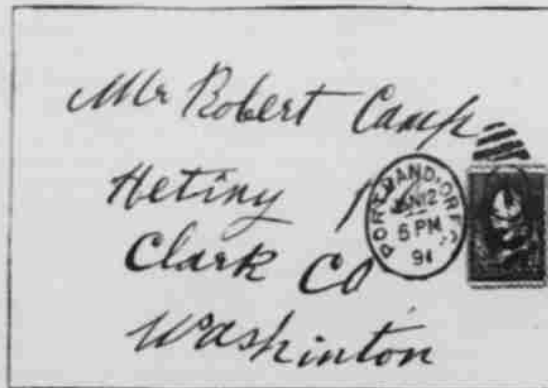 Mr Robert Camp
Hetiny
Clark Co
Washinton
PORTLAND·OREG.
JAN12
5 PM
91